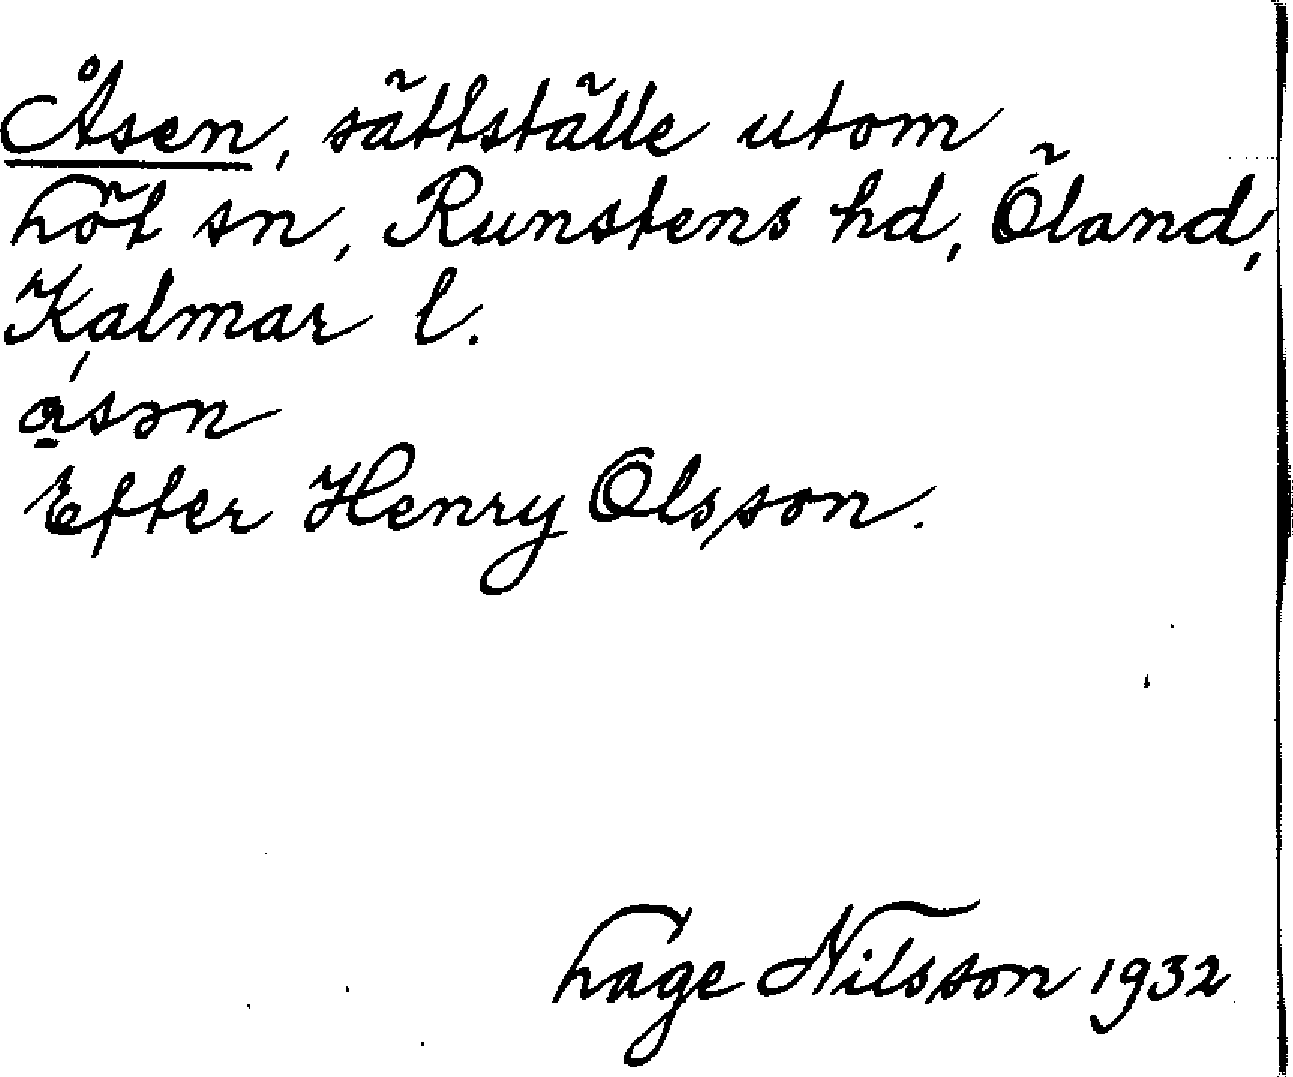 Åsen, sättställe utom
Löt sn, Runstens hd, Öland,
Kalmar l.
ą́sən
Efter Henry Olsson.
Lage Nilsson 1932